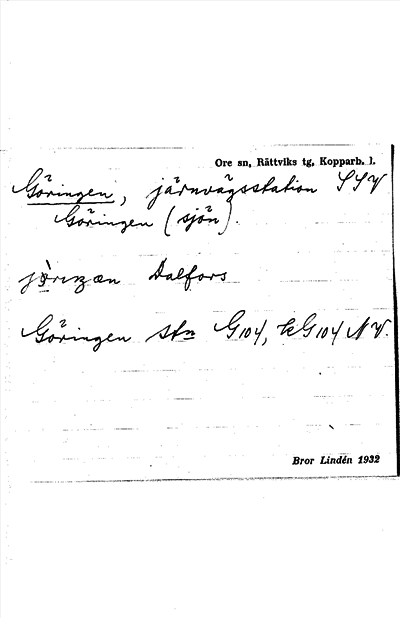 Ore sn, Rättviks tg, Kopparb. l.
Göringen, järnvägsstation SSV
Göringen (sjön).
Dalfors
Göringen stn G104, kG104 NV.
Bror Lindén 1932